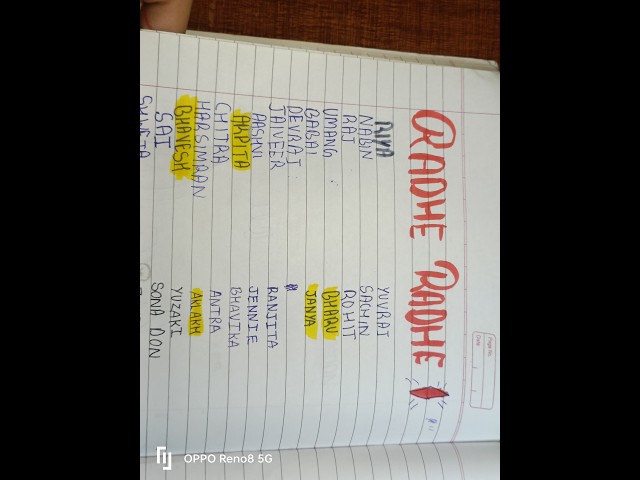 Page No.
Date
RADHE RADHE
RIYA
NABIN
RAJ
UMANG
BABAI
DEVRAJ
JAIVEER
AASHVI
ARPITA
CHITRA
HARSIMRAN
BHAVESH
SAI
YUVRAJ
SACHIN
ROHIT
BHARU
JANYA
RANJITA
JENNIE
BHAVIKA
ANTRA
AVLAKH
YUZAKI
SONA DON
OPPO Reno8 5G